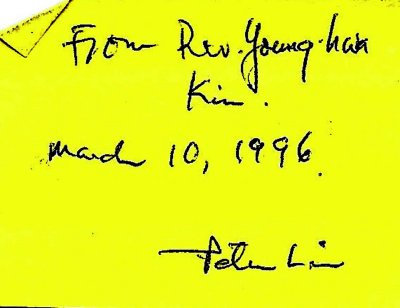 From Rev. Young-han
Kim.
March 10, 1996.
Peter Lin